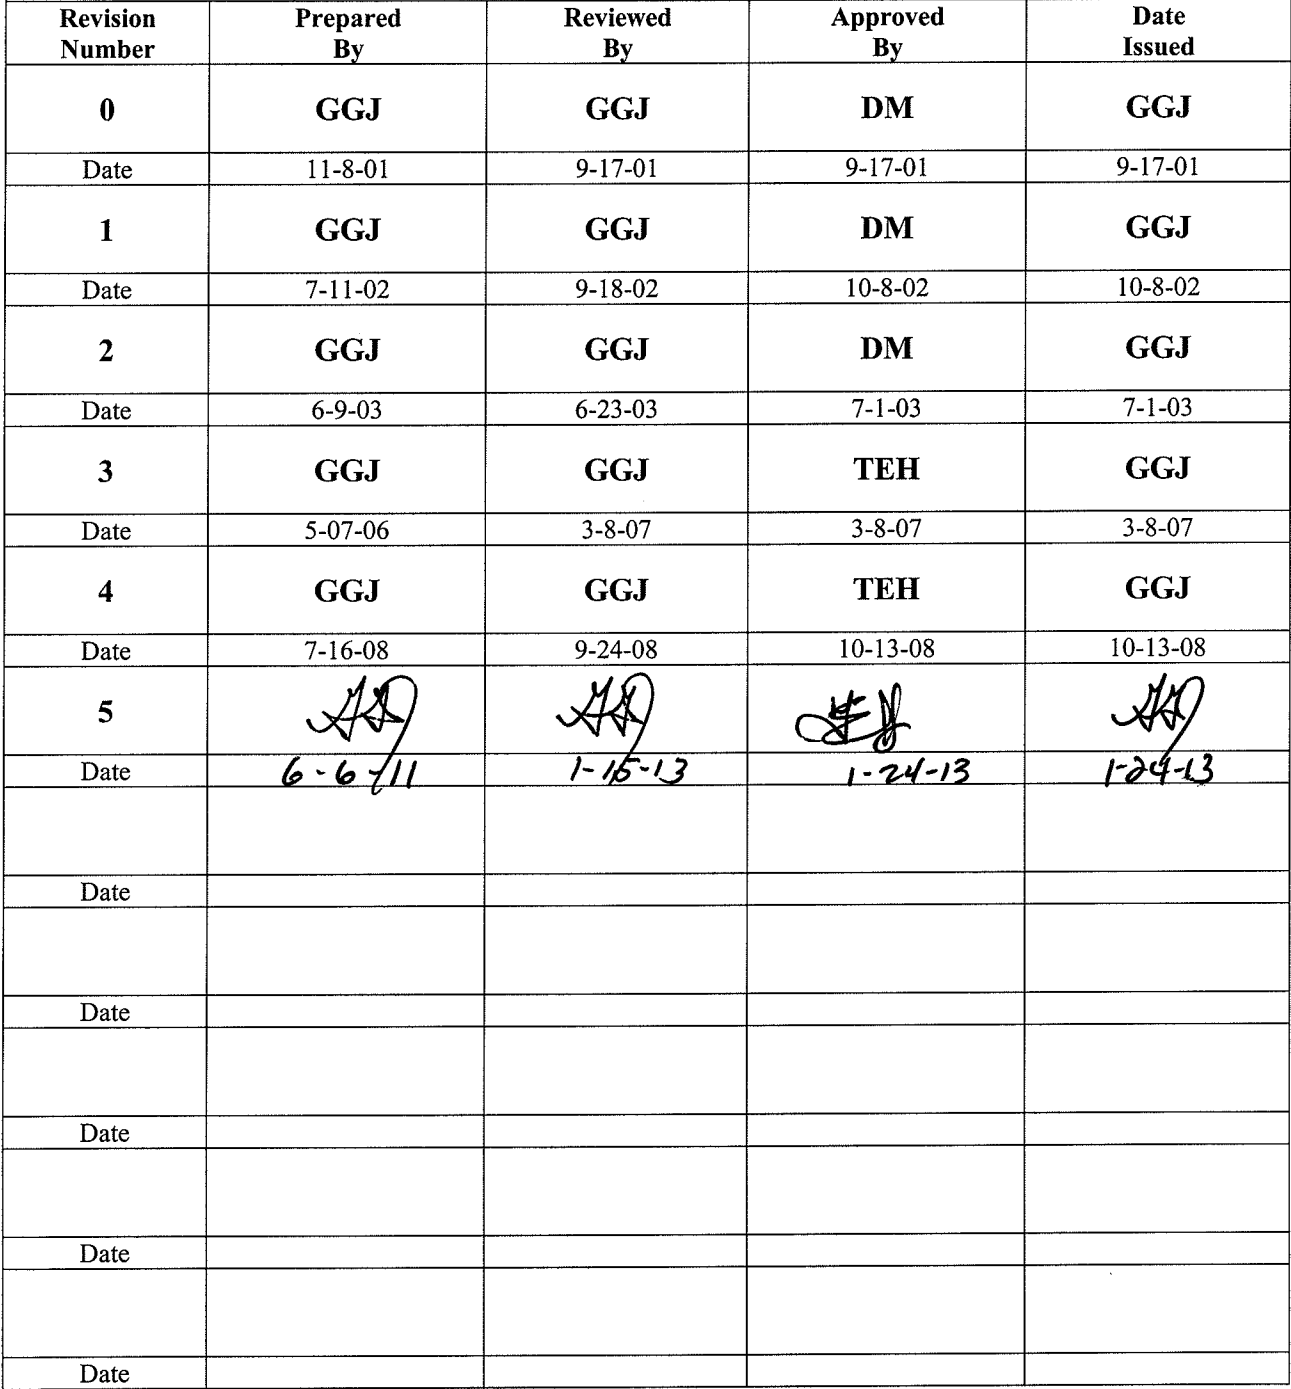 Revision Number Prepared By Reviewed By Approved By Date Issued
0 GGJ GGJ DM GGJ
Date 11-8-01 9-17-01 9-17-01 9-17-01
1 GGJ GGJ DM GGJ
Date 7-11-02 9-18-02 10-8-02 10-8-02
2 GGJ GGJ DM GGJ
Date 6-9-03 6-23-03 7-1-03 7-1-03
3 GGJ GGJ TEH GGJ
Date 5-07-06 3-8-07 3-8-07 3-8-07
4 GGJ GGJ TEH GGJ
Date 7-16-08 9-24-08 10-13-08 10-13-08
5
Date 6-6-11 1-15-13 1-24-13 1-24-13
Date
Date
Date
Date
Date